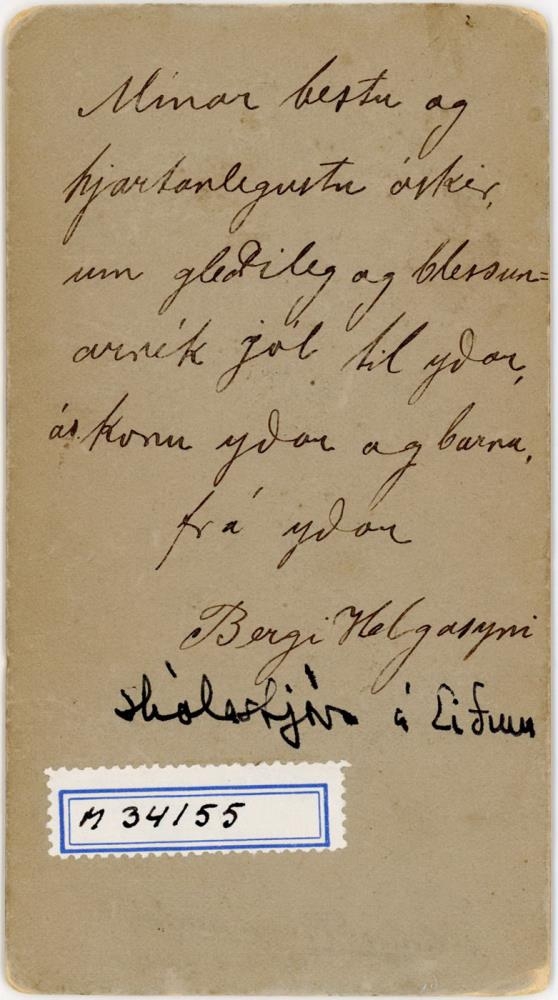 Mínar bestu og
hjartanlegustu óskir,
um gleðileg og blessun=
arrík jól til yðar,
konu yðar og barna,
frá yðar
Bergi Helgasyni
skólastjóra á Eiðum
M 34155